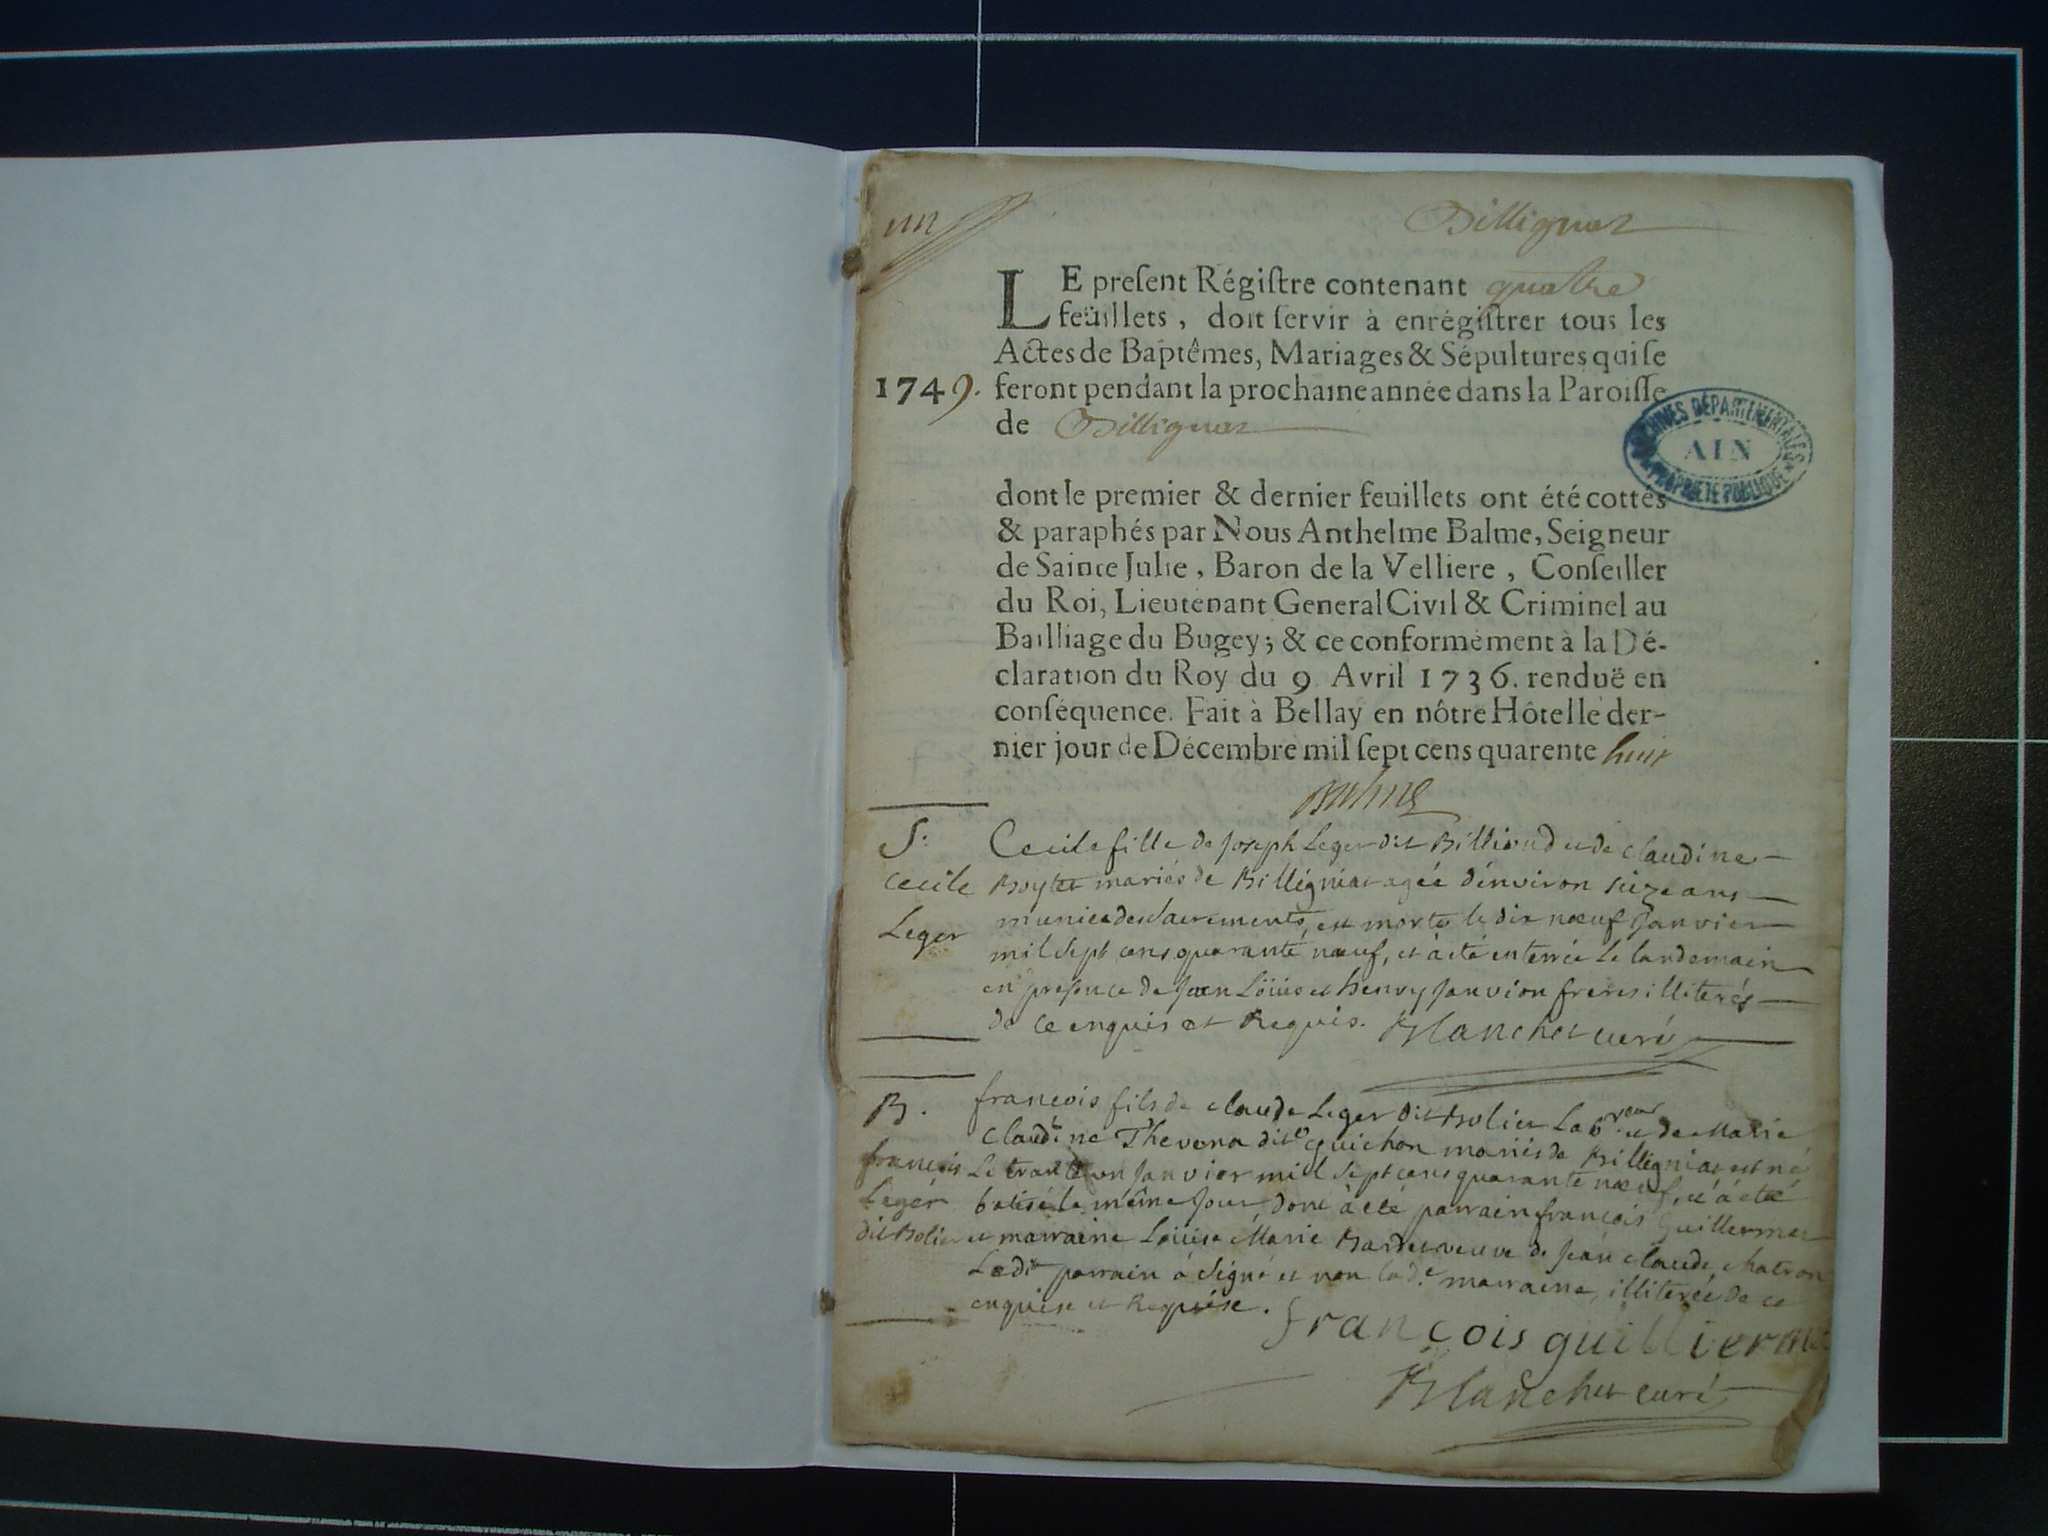 Billignas
LE preſent Régiſtre contenant quatre
feüillets, doit ſervir à enrégiſtrer tous les
Actes de Baptêmes, Mariages & Sépultures qui ſe
1749. feront pendant la prochaine année dans la Paroiſſe
de Billignas
ARCHIVES DÉPARTEMENTALES
AIN
PROPRIÉTÉ PUBLIQUE
dont le premier & dernier feuillets ont été cottés
& paraphés par Nous Anthelme Balme, Seigneur
de Sainte Julie, Baron de la Velliere, Conſeiller
du Roi, Lieutenant General Civil & Criminel au
Bailliage du Bugey; & ce conformément à la Dé-
claration du Roy du 9 Avril 1736. renduë en
conſéquence. Fait à Bellay en nôtre Hôtel le der-
nier jour de Décembre mil ſept cens quarente huit
Balme
S:
Cecile
Leger
Cecile fille de Joseph Leger dit Billioud et de Claudine
mariés de Billignias agée d'environ seize ans
munie des sacrements, est morte le dix nœuf Janvier
mil sept cens quarante nœuf, et à été enterrée le landemain
en presence de Jean Loüis et henry Janvion freres illiterés
de ce enquis et Requis. Blanchet curé
B.
françois
Leger
dit Bolier
françois fils de claude Leger dit Bolier Lab.reur et de Marie
Claudine Thevena dite guichon mariés de Billignias est né
Le trante un Janvier mil sept cens quarante nœuf, et à été
batisé le même Jour, dont à été parrain françois Guillermet
et marraine Loüise Marie Bardet veuve de Jean claude chatron
Ledt parrain à signé et non lade marraine, illiterée de ce
enquise et Requise.
françois guilliermet
Blanchet curé